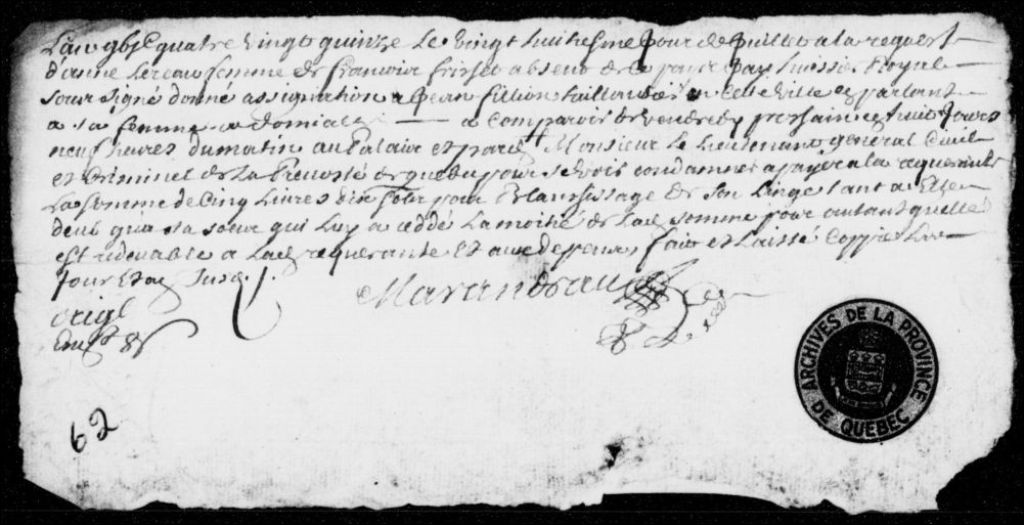 Lan gbjc quatre vingt quinze Le vingt huitiesme Jour de Juillet a la requeste
d'anne Lereau femme de francois frisset absent de ce pays Jay huissier Royal
sous signé donné assignation a Jean fillion taillandier en cette ville en parlant
a sa femme a domicile a Comparoir de vendredy prochain en huit Jours
neuf heures du matin au Palais et par devt Monsieur Le Lieutenant general Civil
et Criminel de La Prevosté de quebec pour se voir condamner a payer a la requerante
La somme de Cinq Livres dix sols pour Blanssissage de son Linge tant a Elle
deub qu'a sa soeur qui Luy a ceddé La moitié de lad somme pour autant quelle
est redevable a lad requerante Et aux despens, fait et Laissé Coppie Les
Jour Et an susd.
origl
Marandeau
62
ARCHIVES DE LA PROVINCE
DE QUÉBEC